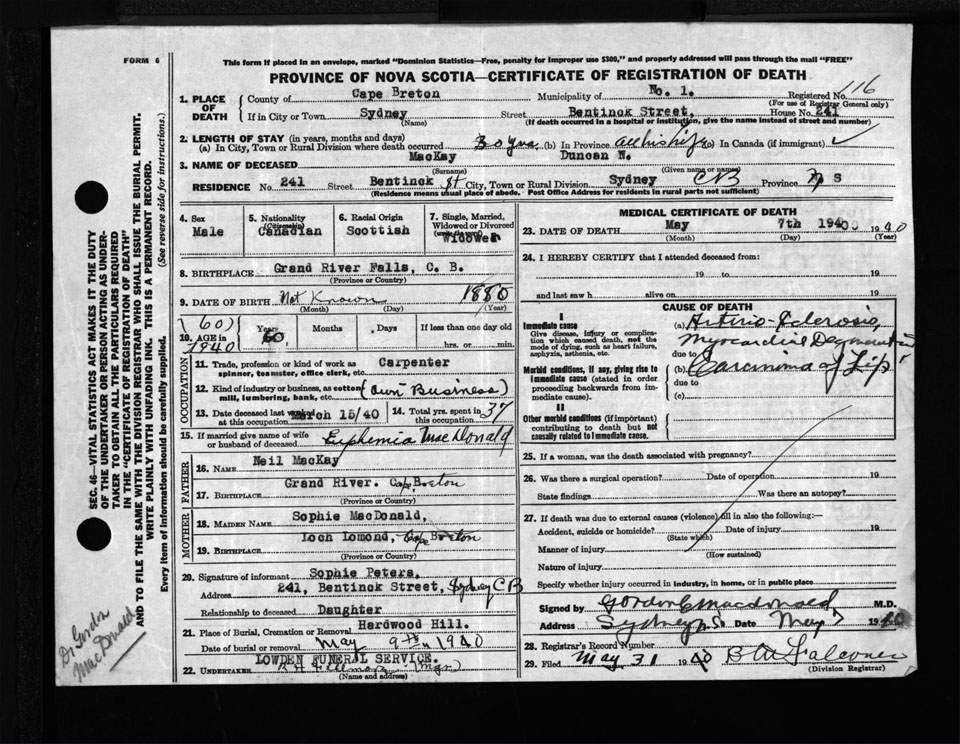 FORM 6
This form if placed in an envelope, marked "Dominion Statistics—Free, penalty for improper use $300," and properly addressed will pass through the mail "FREE"
PROVINCE OF NOVA SCOTIA—CERTIFICATE OF REGISTRATION OF DEATH
116
1. PLACE OF DEATH
County of Cape Breton Municipality of No. 1. Registered No.
(For use of Registrar General only)
If in City or Town Sydney Street Bentinck Street, House No. 241
(Name) (If death occurred in a hospital or institution, give the name instead of street and number)
2. LENGTH OF STAY (in years, months and days)
(a) In City, Town or Rural Division where death occurred 30 yrs. (b) In Province all his life (c) In Canada (if immigrant)
3. NAME OF DECEASED MacKay Duncan N.
(Surname) (Given name or names)
RESIDENCE No. 241 Street Bentinck St City, Town or Rural Division Sydney CB Province N S
(Residence means usual place of abode. Post Office Address for residents in rural parts not sufficient)
4. Sex
Male
5. Nationality
(Citizenship)
Canadian
6. Racial Origin
Scottish
7. Single, Married, Widowed or Divorced
(write the word)
Widower
8. BIRTHPLACE Grand River Falls, C. B.
(Province or Country)
9. DATE OF BIRTH Not Known 1880
(Month) (Day) (Year)
(60)
10. AGE in
1940
Years
60
Months
Days
If less than one day old
hrs. or min.
OCCUPATION
11. Trade, profession or kind of work as Carpenter
spinner, teamster, office clerk, etc.
12. Kind of industry or business, as cotton (Own Business)
mill, lumbering, bank, etc.
13. Date deceased last worked March 15/40
at this occupation
14. Total yrs. spent in 37
this occupation
15. If married give name of wife
or husband of deceased Euphemia MacDonald
FATHER
16. NAME Neil MacKay
17. BIRTHPLACE Grand River. Cape Breton
(Province or Country)
MOTHER
18. MAIDEN NAME Sophie MacDonald,
19. BIRTHPLACE Loch Lomond, Cape Breton
(Province or Country)
20. Signature of informant Sophie Peters,
Address 241, Bentinck Street, Sydney CB
Relationship to deceased Daughter
21. Place of Burial, Cremation or Removal Hardwood Hill.
Date of burial or removal May 9th 1940
LOWDEN FUNERAL SERVICE.
22. UNDERTAKER (Mgr)
(Name and address)
MEDICAL CERTIFICATE OF DEATH
23. DATE OF DEATH May 7th 1940 1940
(Month) (Day) (Year)
24. I HEREBY CERTIFY that I attended deceased from:
19 to 19
and last saw h alive on 19
CAUSE OF DEATH
I
Immediate cause
Give disease, injury or complication which caused death, not the mode of dying, such as heart failure, asphyxia, asthenia, etc.
(a) Arterio-Sclerosis,
Myocardial Degeneration
due to
Morbid conditions, if any, giving rise to immediate cause (stated in order proceeding backwards from immediate cause).
(b) Carcinima of Lip
due to
(c)
II
Other morbid conditions (if important) contributing to death but not causally related to immediate cause.
25. If a woman, was the death associated with pregnancy?
26. Was there a surgical operation? Date of operation 19
State findings Was there an autopsy?
27. If death was due to external causes (violence) fill in also the following:—
Accident, suicide or homicide? Date of injury 19
(State which)
Manner of injury
(How sustained)
Nature of injury
Specify whether injury occurred in industry, in home, or in public place
Signed by Gordon C Macdonald M.D.
Address Sydney N.S. Date May 7 1940
28. Registrar's Record Number
29. Filed May 31 1940 B A Falconer
(Division Registrar)
SEC. 46—VITAL STATISTICS ACT MAKES IT THE DUTY
OF THE UNDERTAKER OR PERSON ACTING AS UNDER-
TAKER TO OBTAIN ALL THE PARTICULARS REQUIRED
IN THE "CERTIFICATE OF REGISTRATION OF DEATH"
AND TO FILE THE SAME WITH THE DIVISION REGISTRAR WHO SHALL ISSUE THE BURIAL PERMIT.
WRITE PLAINLY WITH UNFADING INK. THIS IS A PERMANENT RECORD.
Every item of information should be carefully supplied. (See reverse side for instructions.)
Dr Gordon
MacDonald